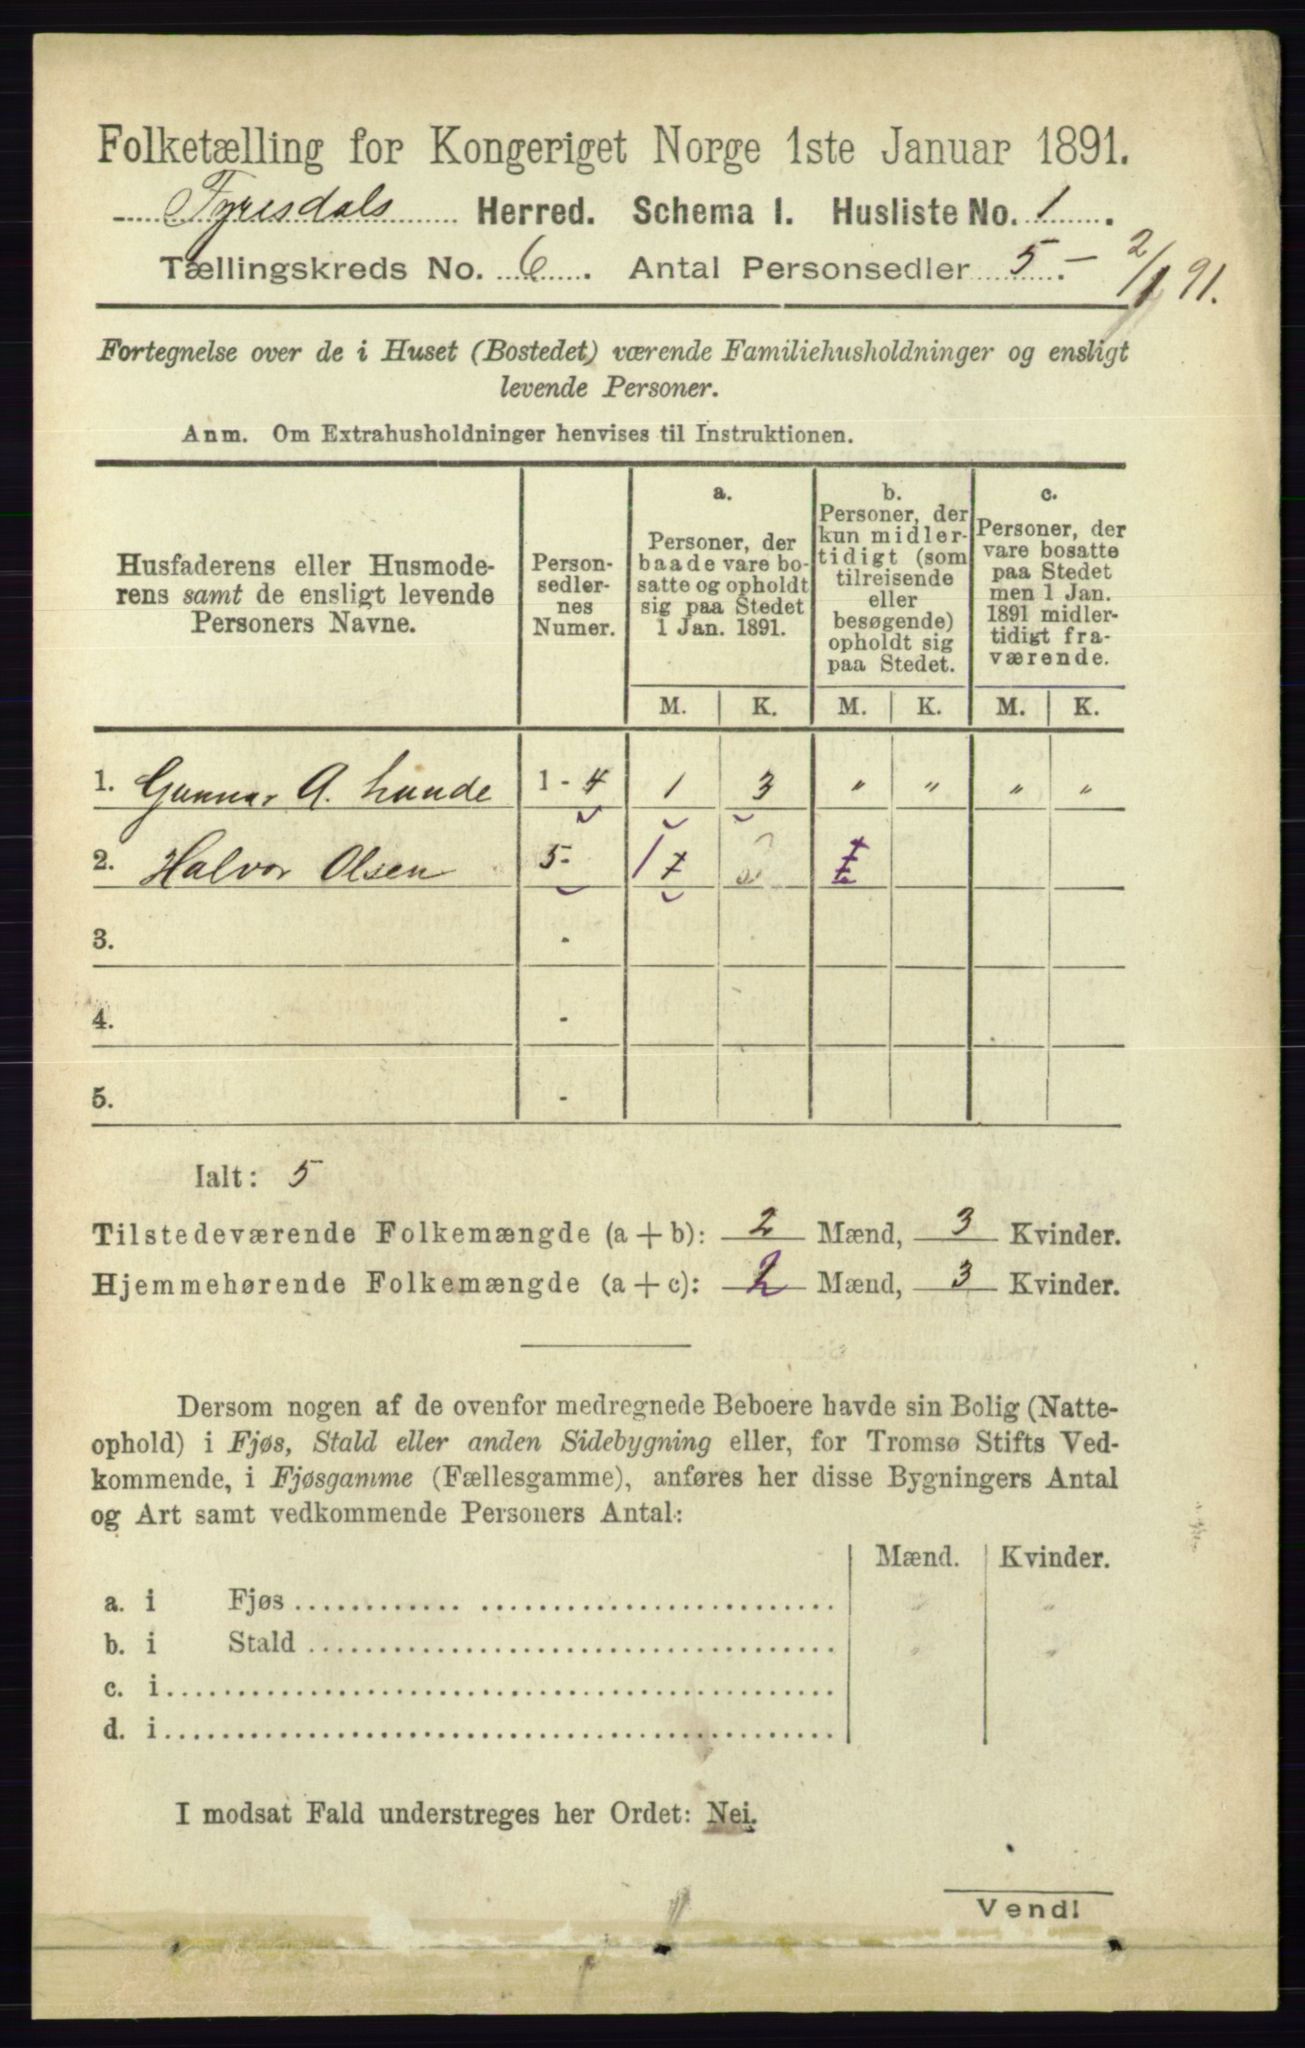 Folketælling for Kongeriget Norge 1ste Januar 1891.
Tyrisdals Herred. Schema 1. Husliste No. 1.
Tællingskreds No. 6. Antal Personsedler 5. - 2/1 91.
Fortegnelse over de i Huset (Bostedet) værende Familiehusholdninger og ensligt
levende Personer.
Anm. Om Extrahusholdninger henvises til Instruktionen.
Husfaderens eller Husmode-
rens samt de ensligt levende
Personers Navne.
Person-
sedler-
nes
Numer.
a.
Personer, der
baade vare bo-
satte og opholdt
sig paa Stedet
1 Jan. 1891.
b.
Personer, der
kun midler-
tidigt (som
tilreisende
eller
besøgende)
opholdt sig
paa Stedet.
c.
Personer, der
vare bosatte
paa Stedet
men 1 Jan.
1891 midler-
tidigt fra-
værende.
M. K. M. K. M. K.
1. Gunnar A. Lunde 1 - 4 1 3 " " " "
2. Halvor Olsen 5- 1
3. -
4. -
5. -
Ialt: 5
Tilstedeværende Folkemængde (a + b): 2 Mænd, 3 Kvinder.
Hjemmehørende Folkemængde (a + c): 2 Mænd, 3 Kvinder.
Dersom nogen af de ovenfor medregnede Beboere havde sin Bolig (Natte-
ophold) i Fjøs, Stald eller anden Sidebygning eller, for Tromsø Stifts Ved-
kommende, i Fjøsgamme (Fællesgamme), anføres her disse Bygningers Antal
og Art samt vedkommende Personers Antal:
Mænd. Kvinder.
a. i Fjøs " "
b. i Stald " "
c. i
d. i
I modsat Fald understreges her Ordet: Nei.
Vend!